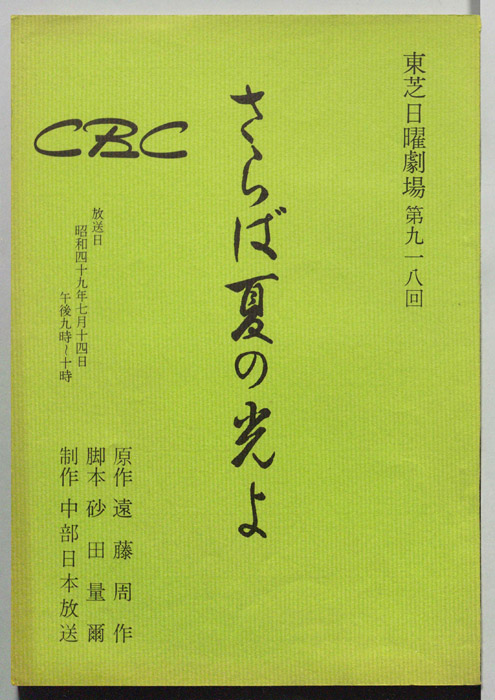 東芝日曜劇場 第九一八回
さらば夏の光よ
CBC
放送日
昭和四十九年七月十四日
午後九時～十時
原作 遠藤周作
脚本 砂田量爾
制作 中部日本放送